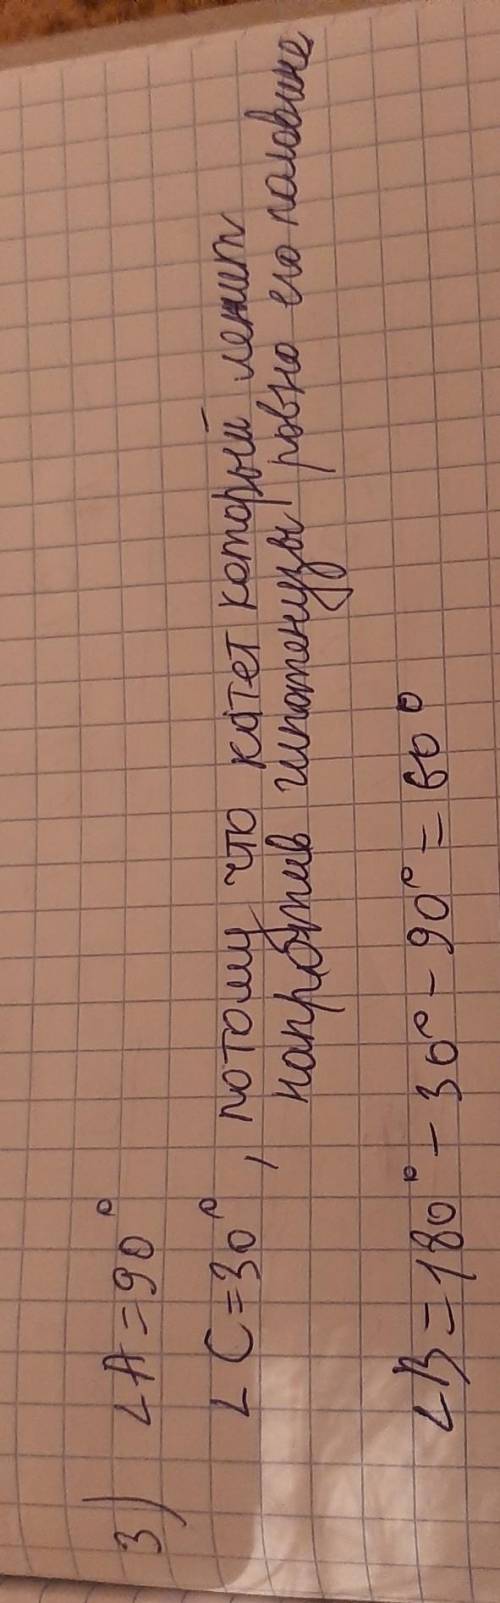 3) ∠A=90°
∠C=30°, потому что катет который лежит
напротив гипотенузы ровно его половине
∠B=180°-30°-90°=60°